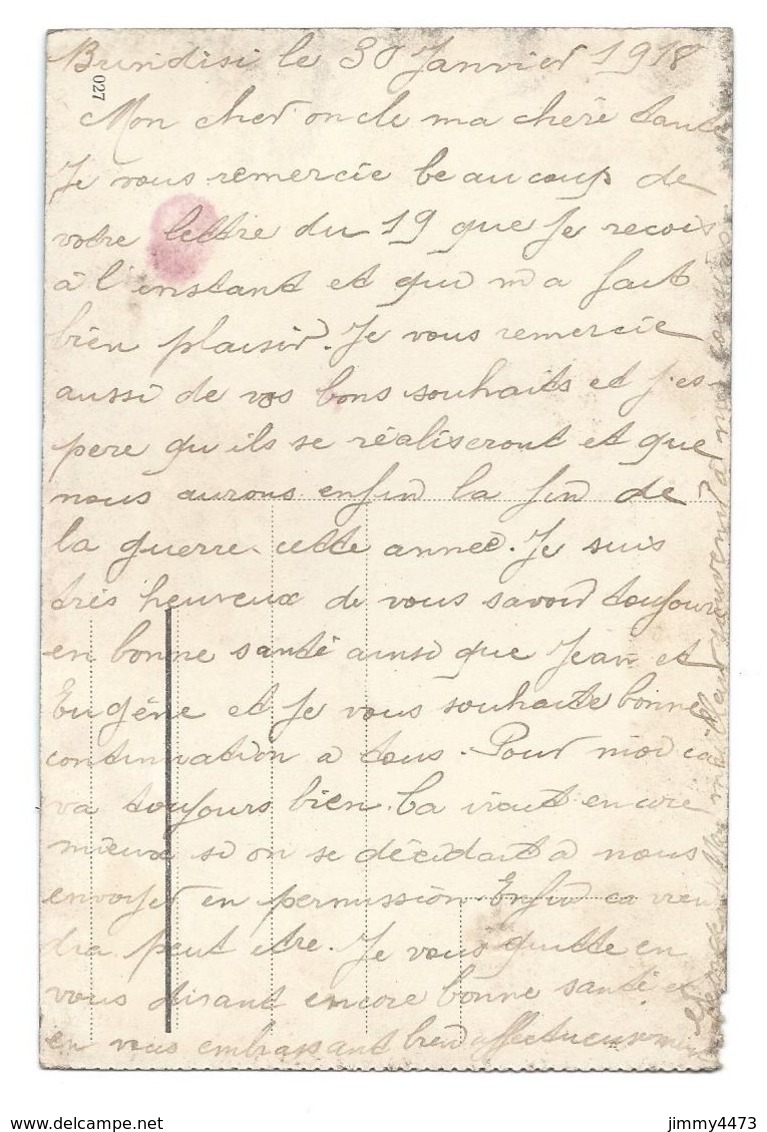 Brindisi le 30 Janvier 1918
027
Mon cher oncle ma chère tante
Je vous remercie beaucoup de
votre lettre du 19 que je recois
à l'instant et qui m'a fait
bien plaisir. Je vous remercie
aussi de vos bons souhaits et j'es-
pere qu'ils se réaliseront et que
nous aurons enfin la fin de
la guerre cette année. Je suis
très heureux de vous savoir toujours
en bonne santé ainsi que Jean et
Eugène et je vous souhaite bonne
continuation a tous. Pour moi ca
va toujours bien. Ca irait encore
mieux si on se décidait a nous
envoyer en permission. Enfin ca vien
dra peut etre. Je vous quitte en
vous disant encore bonne santé et
en vous embrassant bien affectueusement
souvenir à mes cousins
jimmy4473